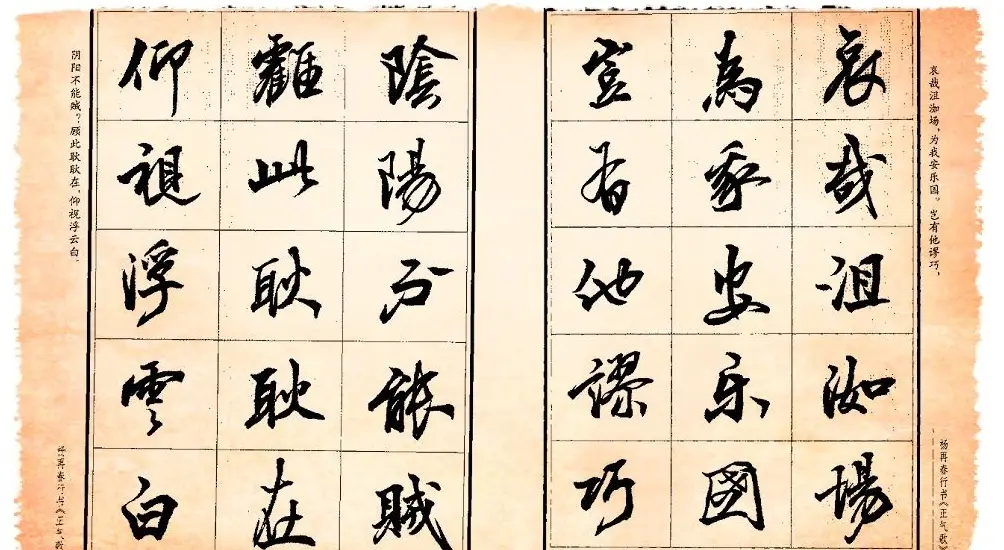 哀哉沮洳场，为我安乐国。岂有他谬巧，
杨再春行书《正气歌》
哀哉沮洳場
為我安乐國
豈有他謬巧
陰陽不能賊
顧此耿耿在
仰視浮雲白
阴阳不能贼？顾此耿耿在，仰视浮云白。
杨再春行书《正气歌